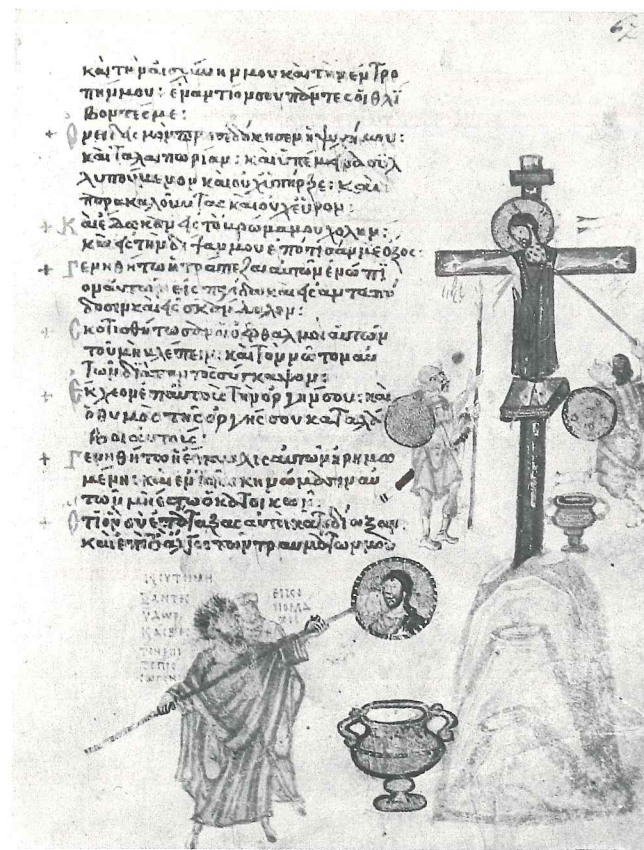 καὶ τὴν αἰσχύνην μου καὶ τὴν ἐντρο
πήν μου: ἐναντίον σου πάντες οἱ θλί
βοντές με:
+ Ὀνειδισμὸν προσεδόκησεν ἡ ψυχή μου:
καὶ ταλαιπωρίαν: καὶ ὑπέμεινα συλ
λυπούμενον καὶ οὐχ ὑπῆρξε: καὶ
παρακαλοῦντας καὶ οὐχ εὗρον:
+ Καὶ ἔδωκαν εἰς τὸ βρῶμά μου χολήν:
καὶ εἰς τὴν δίψαν μου ἐπότισάν με ὄξος:
+ Γενηθήτω ἡ τράπεζα αὐτῶν ἐνώπι
ον αὐτῶν εἰς παγίδα καὶ εἰς ἀνταπό
δοσιν καὶ εἰς σκάνδαλον:
+ Σκοτισθήτωσαν οἱ ὀφθαλμοὶ αὐτῶν
τοῦ μὴ βλέπειν: καὶ τὸν νῶτον αὐ
τῶν διὰ παντὸς σύγκαμψον:
+ Ἔκχεον ἐπ' αὐτοὺς τὴν ὀργήν σου: καὶ
ὁ θυμὸς τῆς ὀργῆς σου καταλά
βοι αὐτούς:
+ Γενηθήτω ἡ ἔπαυλις αὐτῶν ἠρημω
μένη: καὶ ἐν τοῖς σκηνώμασιν αὐ
τῶν μὴ ἔστω ὁ κατοικῶν:
+ Ὅτι ὃν σὺ ἐπάταξας αὐτοὶ κατεδίωξαν:
καὶ ἐπὶ τὸ ἄλγος τῶν τραυμάτων μου
ΥΔΩΡ